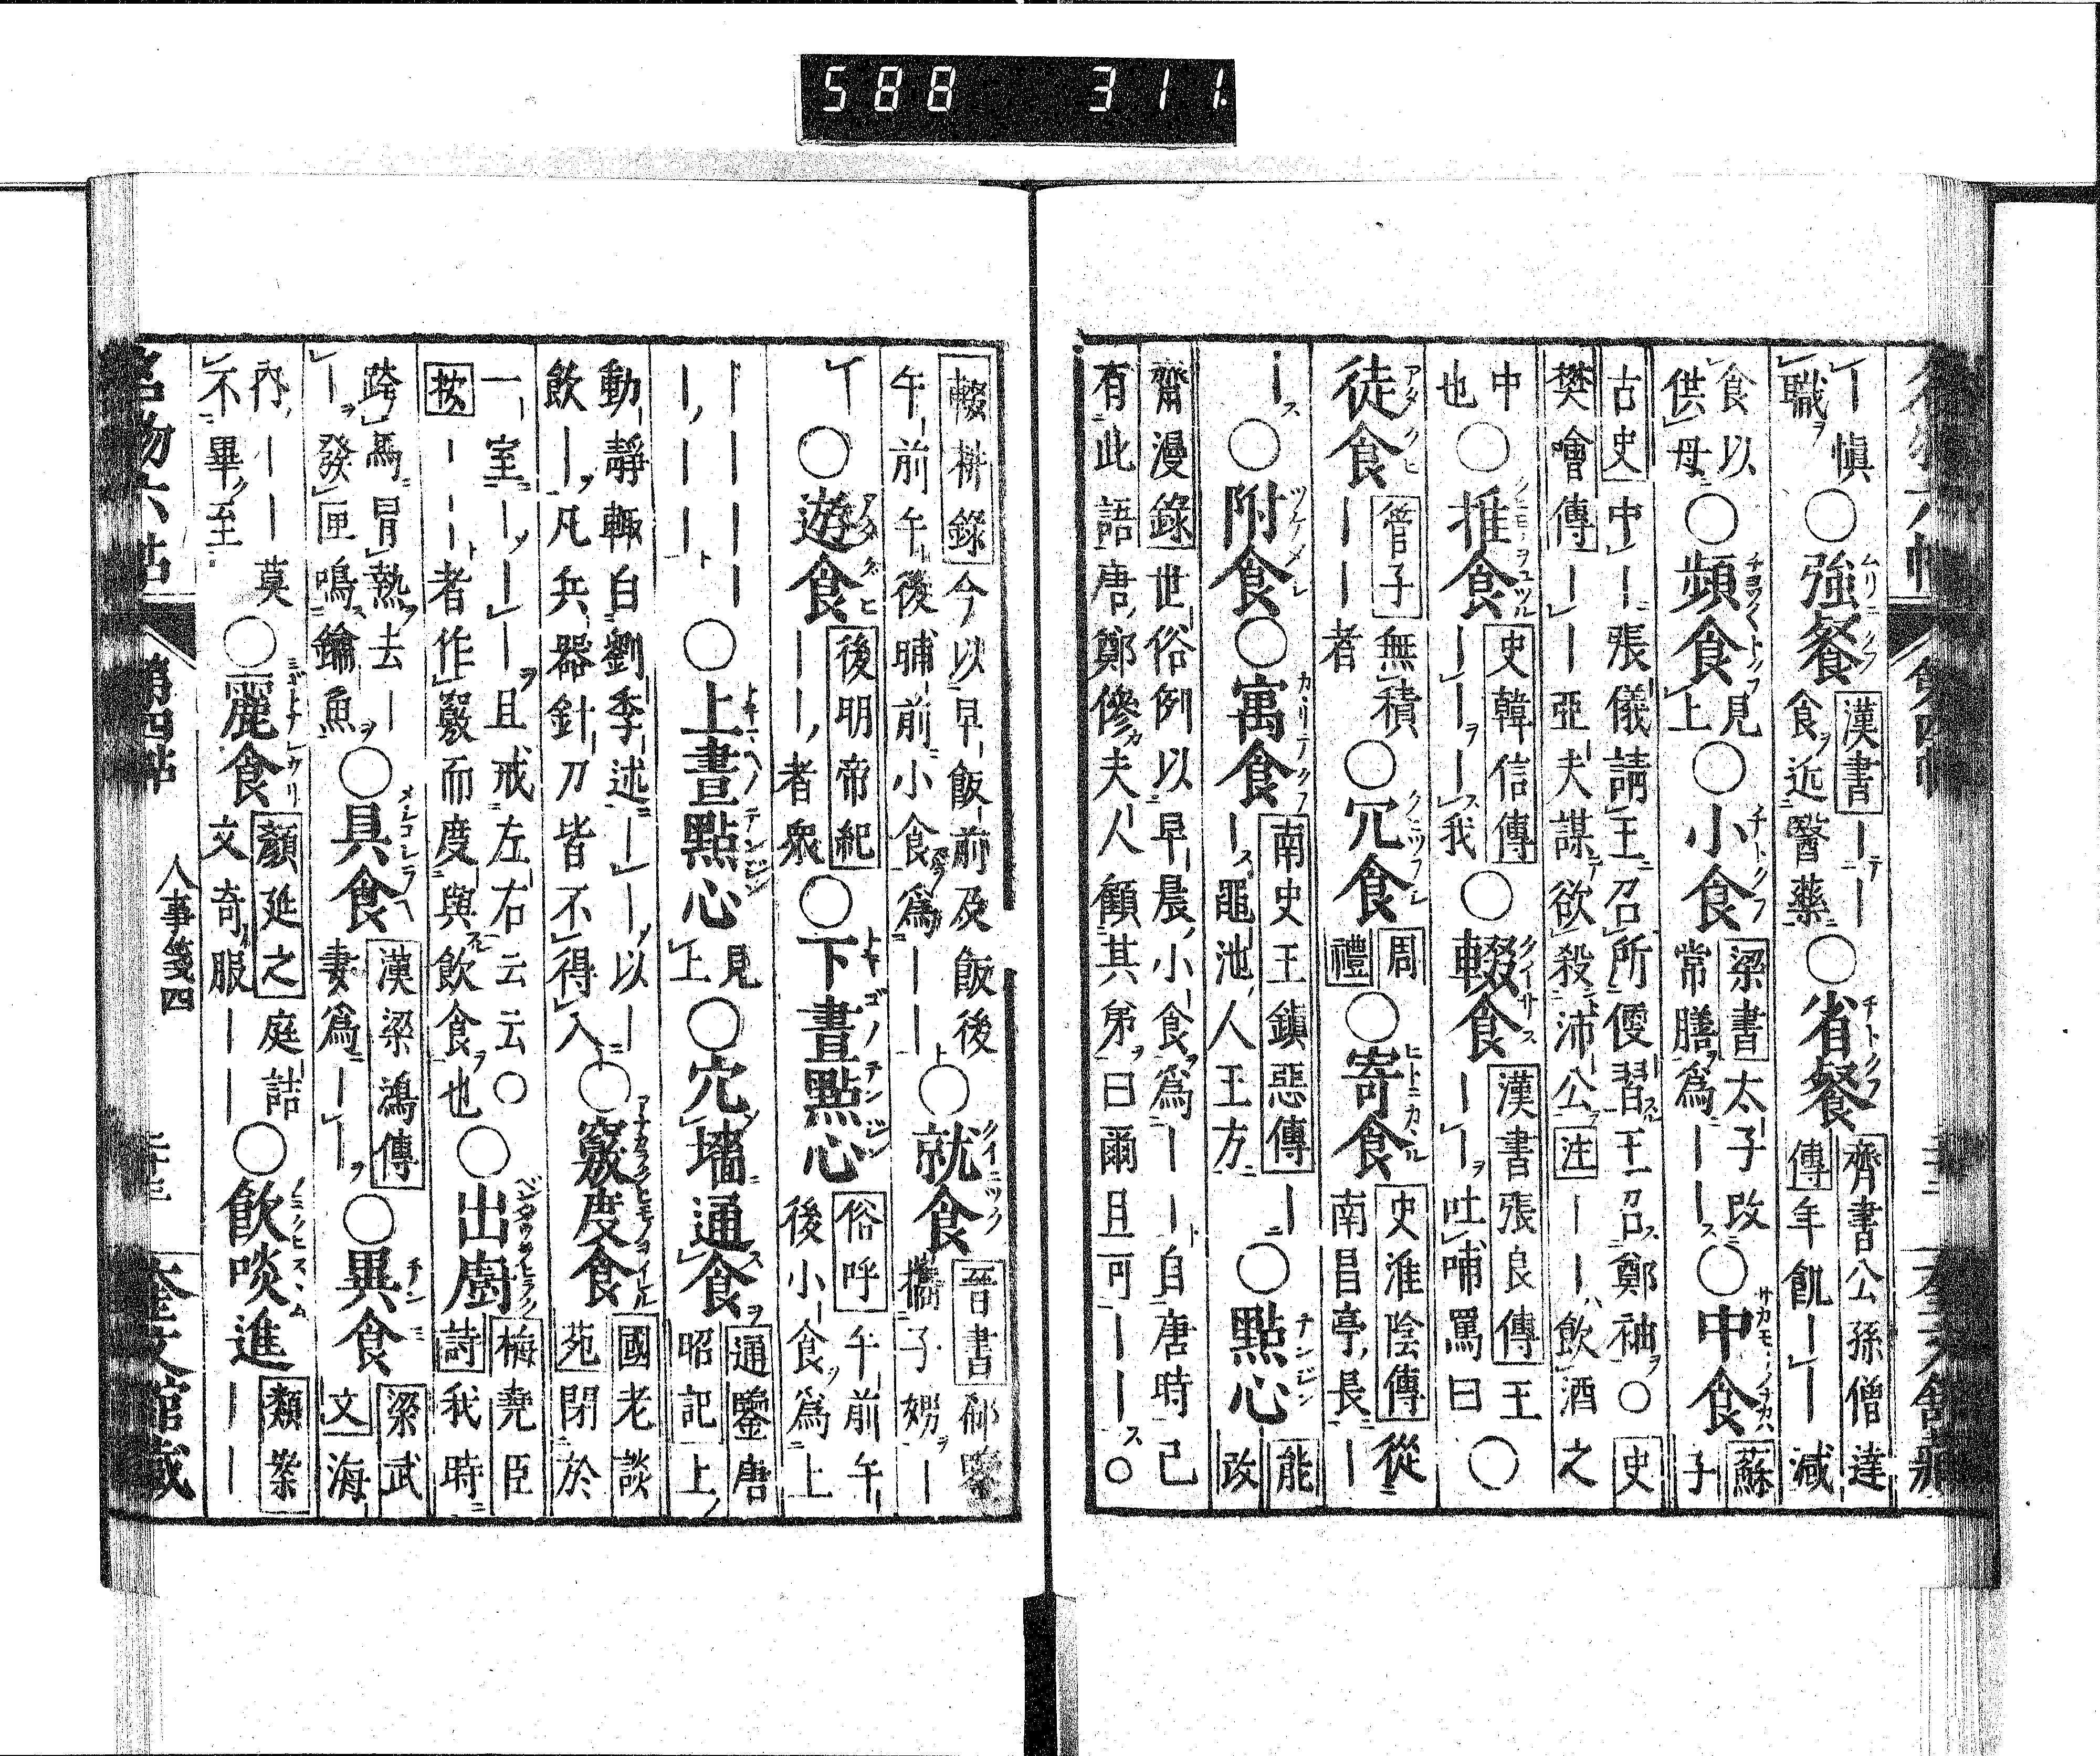 第四帖
―慎職○強餐漢書――食近醫藥○省餐齊書公孫僧達傳年飢――減
食以供母○頻食見上○小食梁書太子改常膳爲――○中食蘇子
古史中―張儀請王召所便習王召鄭袖○史樊噲傳――亞夫謀欲殺沛公注――飲酒之
中也○推食史韓信傳――――我○輟食漢書張良傳王――吐哺罵曰○
徒食管子無積――者○冗食周禮○寄食史淮陰傳從南昌亭長―
―○附食○寓食南史王鎮惡傳――黽池人王方○點心能改
齋漫錄世俗例以早晨小食爲――自唐時已有此語唐鄭傪夫人顧其弟曰爾且可――○
輟耕錄今以早飯前及飯後午前午後晡前小食爲――○就食晉書郗鑒攜子甥―
○遊食後明帝紀――者衆○下晝點心俗呼午前午後小食爲上
――――――――○上晝點心見上○穴墻通食通鑒唐昭記上
動靜輒白劉季述――以―飲―凡兵器針刀皆不得入○竅度食國老談苑閉於
一室―――且戒左右云云○按―――者作竅而度與飲食也○出廚梅堯臣詩我時
跨馬冒熱去――發匣鳴鑰魚○具食漢梁鴻傳妻爲――○異食梁武文海
內――莫不畢至○麗食顏延之庭誥文奇服――○飲啖進類案――
名物六帖 第四帖 人事箋四 奎文館藏
588 311